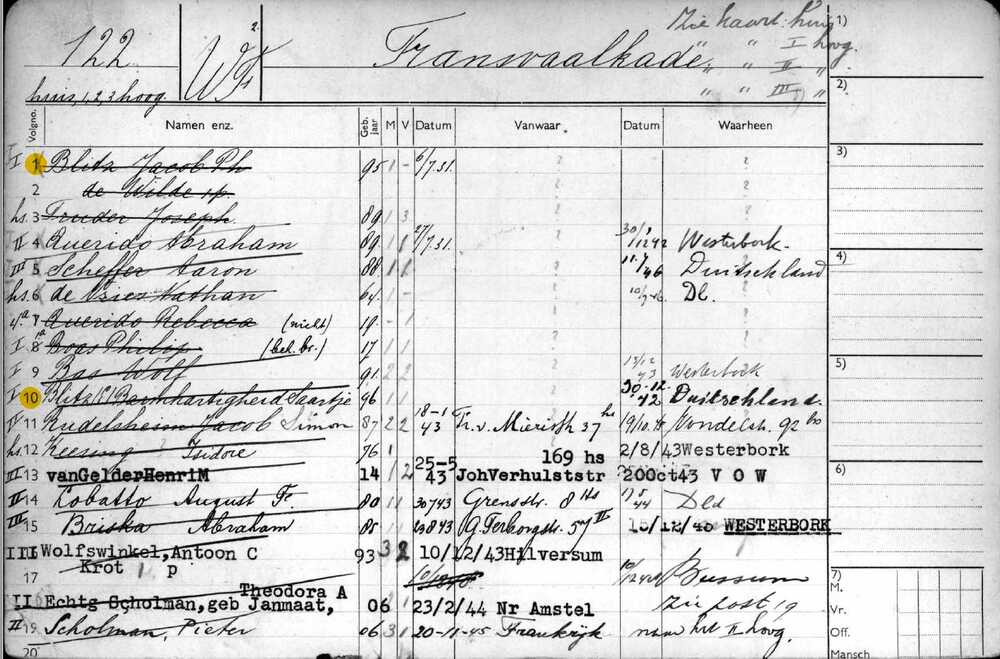 122
huis, 1, 2, 3 hoog
2.
Transvaalkade
Zie kaart: huis
" " I hoog.
" " II "
" " III "
Volgno. Namen enz. Geb. jaar M V Datum Vanwaar Datum Waarheen
I 1 Blitz Jacob Ph 95 1 - 6/7.31.
2 de Wilde sp.
hs. 3 Truder Joseph. 89 1 3
II 4 Querido Abraham 89 1 1 27/7.31. 30/9/1242 Westerbork.
III 5 Scheffer Aaron 88 1 1 Duitschland
hs. 6 de Vries Nathan 64 1 - Dl.
7 Querido Rebecca (nicht) 19 - 1
I 8 Boas Philip (beh. br.) 17 1 1
I 9 Bas Wolf 91 2 2 Westerbork
I 10 Blitz Barmhartigheid Saartje 96 1 1 30-12-42 Duitschland.
II 11 Rudelsheim Jacob Simon 87 2 2 18-1-43 Fr. v. Mierisstr 37 hs Vondelstr. 92 bo
hs. 12 Keesing Isidore 76 1 2/8/43 Westerbork
III 13 van Gelder Henri M 14 1 2 25-5-43 Joh Verhulststr 169 hs 20 Oct 43 V O W
II 14 Lobatto August F. 80 1 1 30743 Grensstr. 8 hs Dld
III 15 Briska Abraham 85 1 1 23843 G. Terborgstr. 57 II 15/12/43 WESTERBORK
III Wolfswinkel, Antoon C 93 3 2 10/12/43 Hilversum
17 Krot 1 p Bussum
Theodora A
II Echtg Scholman, geb Janmaat, 06 1 23/2/44 Nr Amstel Zie post 19
II 19 Scholman, Pieter 06 3 1 20-11-45 Frankrijk naar hs II hoog.
20
1)
2)
3)
4)
5)
6)
7)
M.
Vr.
Off.
Mansch